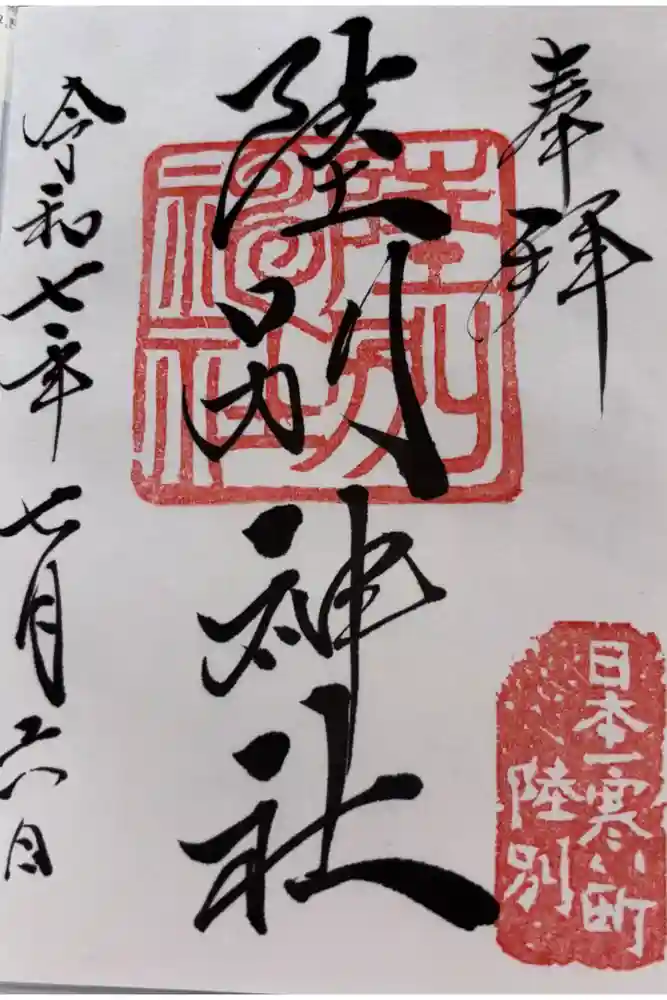 奉拝
陸別神社
陸別神社
令和七年七月六日
日本一寒い町
陸別